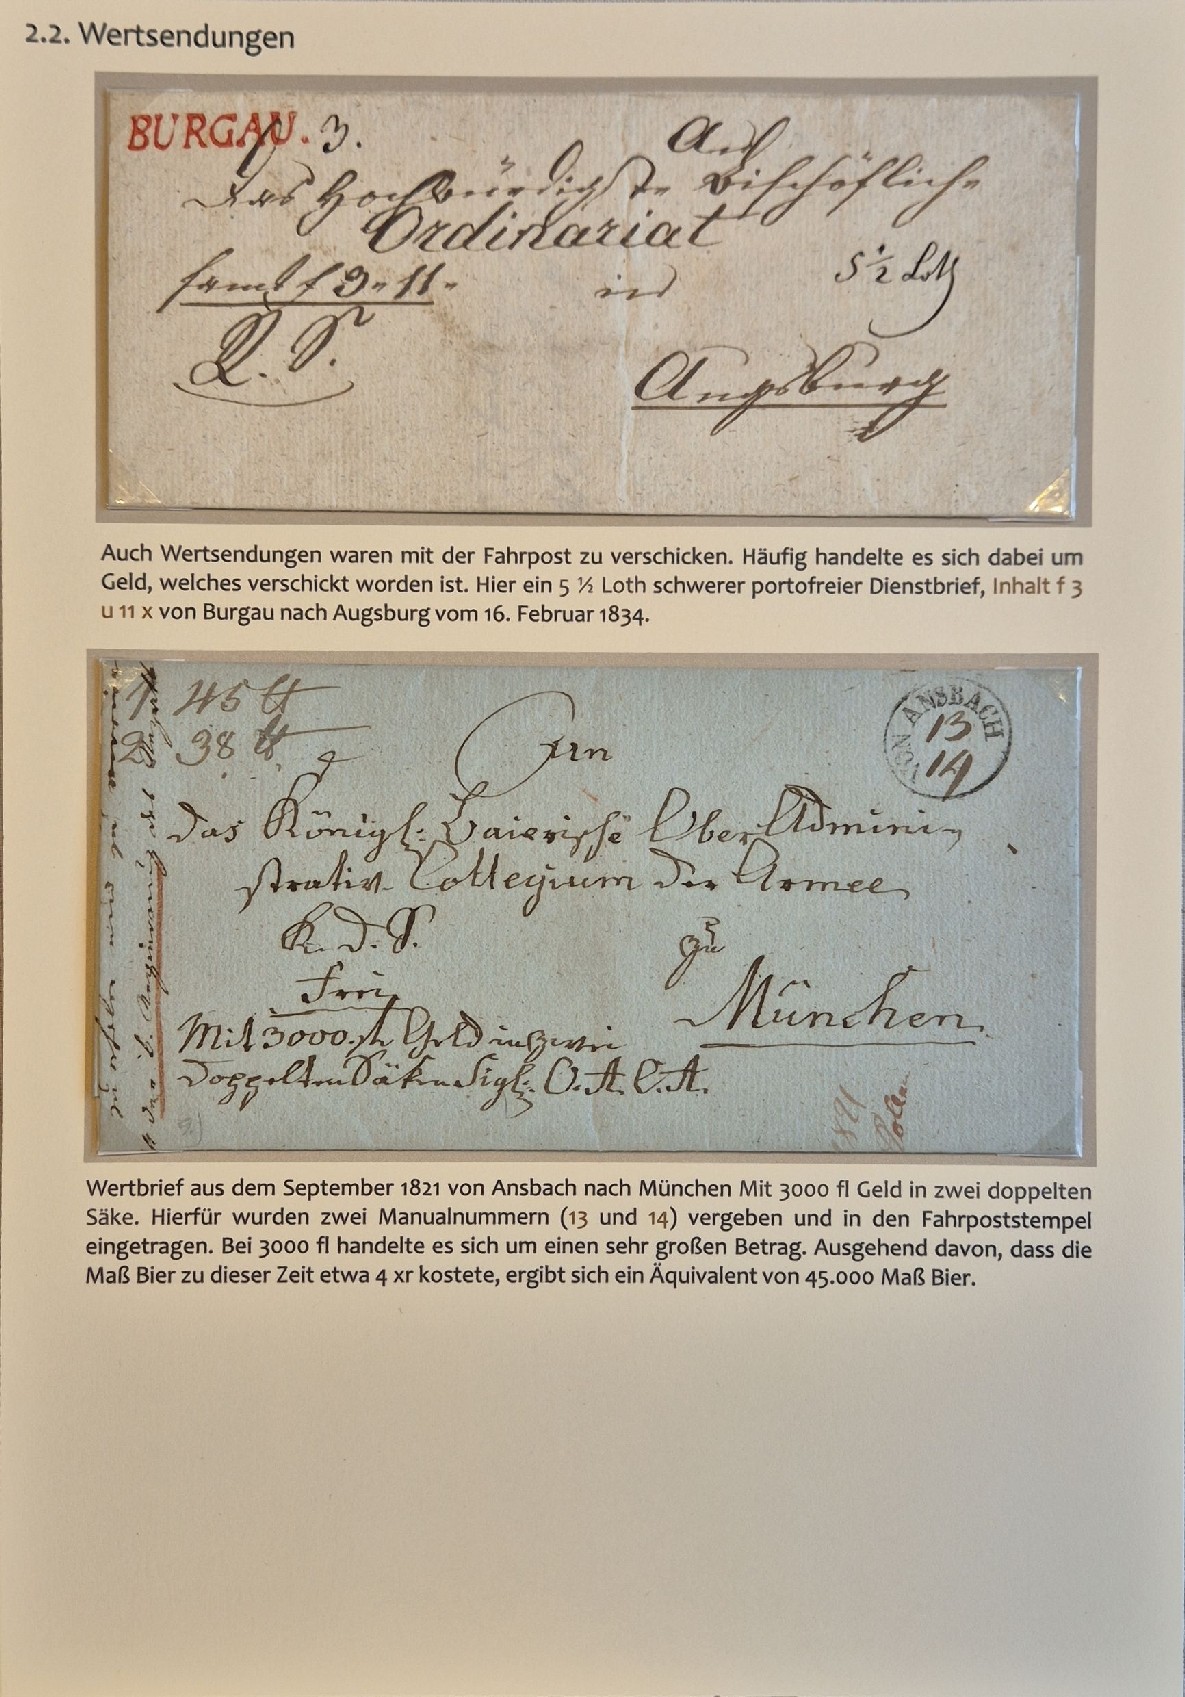 2.2. Wertsendungen
BURGAU. 3.
An
Das Hochwürdigste Bischöfliche
Ordinariat
samt f 3 " 11 "
in
5 ½ Loth
R. S.
Augsburg
Auch Wertsendungen waren mit der Fahrpost zu verschicken. Häufig handelte es sich dabei um
Geld, welches verschickt worden ist. Hier ein 5 ½ Loth schwerer portofreier Dienstbrief, Inhalt f 3
u 11 x von Burgau nach Augsburg vom 16. Februar 1834.
1 45 ℔
2 38 ℔
An
VON ANSBACH
13
14
das Königl: Baierische Ober Admini-
strativ Collegium der Armee
K. d. S.
zu
Frei
München
Mit 3000 fl Geld in zwei
doppelten Säken Sigl: O. A. C. A.
1821
Wertbrief aus dem September 1821 von Ansbach nach München Mit 3000 fl Geld in zwei doppelten
Säke. Hierfür wurden zwei Manualnummern (13 und 14) vergeben und in den Fahrpoststempel
eingetragen. Bei 3000 fl handelte es sich um einen sehr großen Betrag. Ausgehend davon, dass die
Maß Bier zu dieser Zeit etwa 4 xr kostete, ergibt sich ein Äquivalent von 45.000 Maß Bier.